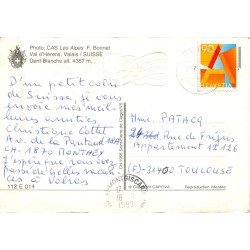 Photo: CAS Les Alpes F. Bonnet
Val d'Hérens, Valais / SUISSE
Dent-Blanche alt. 4357 m.
90
HELVETIA
D'un petit coin
de Suisse, je vous
envoie mes meil-
leures amitiés
Christiane Collet
Av. de la
CH-1870 MONTHEY
J'espère que vous avez
passé de belles vacan
ces
112 E 014
Mme. PATACQ
24 Rue de Fréjus
Appartement 12126
(F)-31400 TOULOUSE
Reproduction interdite